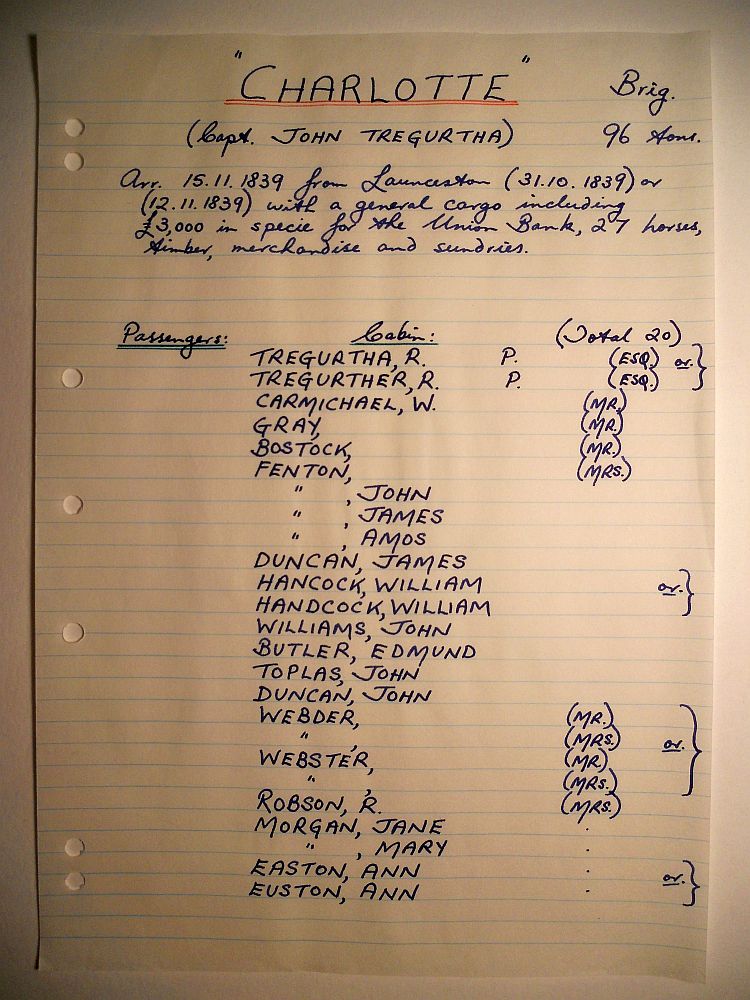 "CHARLOTTE" Brig.
(Capt. JOHN TREGURTHA) 96 tons.
Arr. 15.11.1839 from Launceston (31.10.1839) or
(12.11.1839) with a general cargo including
£3,000 in specie for the Union Bank, 27 horses,
timber, merchandise and sundries.
Passengers: Cabin: (Total 20)
TREGURTHA, R. P. (ESQ.) or. }
TREGURTHER, R. P. (ESQ.)
CARMICHAEL, W. (MR.)
GRAY, (MR.)
BOSTOCK, (MR.)
FENTON, (MRS.)
" , JOHN
" , JAMES
" , AMOS
DUNCAN, JAMES
HANCOCK, WILLIAM or. }
HANDCOCK, WILLIAM
WILLIAMS, JOHN
BUTLER, EDMUND
TOPLAS, JOHN
DUNCAN, JOHN
WEBDER, (MR.)
" , (MRS.) or. }
WEBSTER, (MR.)
" , (MRS.)
ROBSON, R. (MRS.)
MORGAN, JANE .
" , MARY .
EASTON, ANN . or. }
EUSTON, ANN .